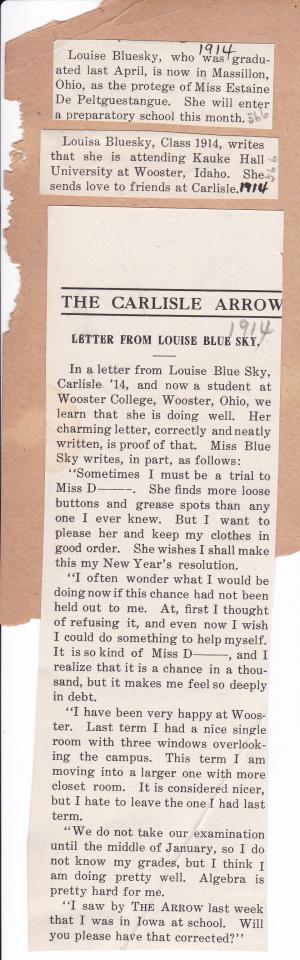 1914
Louise Bluesky, who was gradu-
ated last April, is now in Massillon,
Ohio, as the protege of Miss Estaine
De Peltguestangue. She will enter
a preparatory school this month. 566
Louisa Bluesky, Class 1914, writes
that she is attending Kauke Hall
University at Wooster, Idaho. She
sends love to friends at Carlisle. 1914
THE CARLISLE ARROW
1914
LETTER FROM LOUISE BLUE SKY.
In a letter from Louise Blue Sky,
Carlisle '14, and now a student at
Wooster College, Wooster, Ohio, we
learn that she is doing well. Her
charming letter, correctly and neatly
written, is proof of that. Miss Blue
Sky writes, in part, as follows:
"Sometimes I must be a trial to
Miss D——. She finds more loose
buttons and grease spots than any
one I ever knew. But I want to
please her and keep my clothes in
good order. She wishes I shall make
this my New Year's resolution.
"I often wonder what I would be
doing now if this chance had not been
held out to me. At, first I thought
of refusing it, and even now I wish
I could do something to help myself.
It is so kind of Miss D——, and I
realize that it is a chance in a thou-
sand, but it makes me feel so deeply
in debt.
"I have been very happy at Woos-
ter. Last term I had a nice single
room with three windows overlook-
ing the campus. This term I am
moving into a larger one with more
closet room. It is considered nicer,
but I hate to leave the one I had last
term.
"We do not take our examination
until the middle of January, so I do
not know my grades, but I think I
am doing pretty well. Algebra is
pretty hard for me.
"I saw by THE ARROW last week
that I was in Iowa at school. Will
you please have that corrected?"